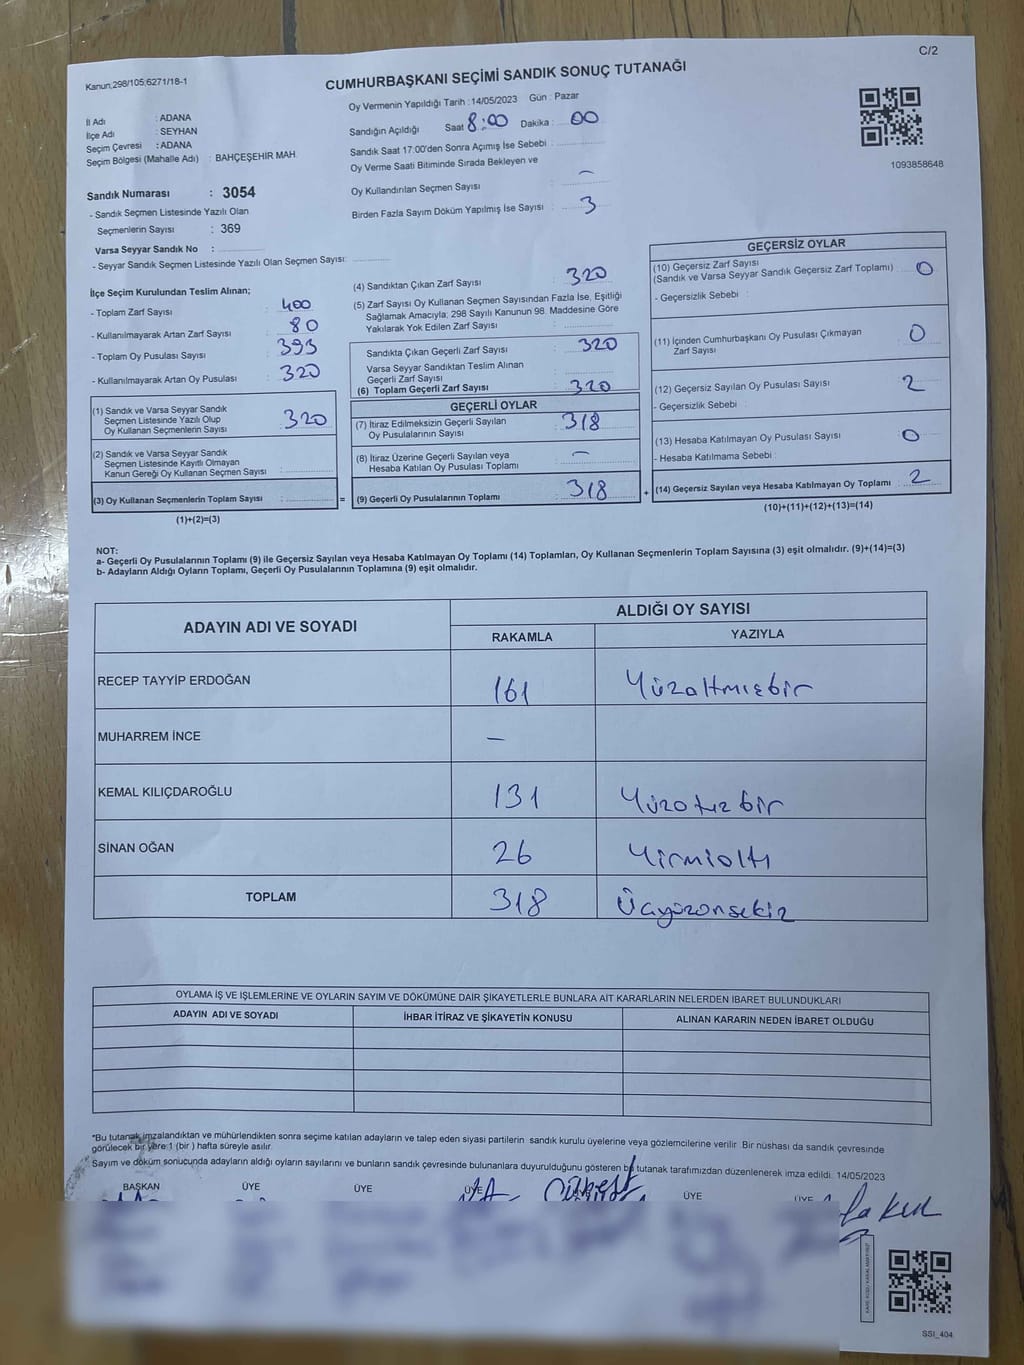 C/2
Kanun;298/105;6271/18-1
CUMHURBAŞKANI SEÇİMİ SANDIK SONUÇ TUTANAĞI
Oy Vermenin Yapıldığı Tarih : 14/05/2023 Gün : Pazar
İl Adı : ADANA
İlçe Adı : SEYHAN
Seçim Çevresi : ADANA
Seçim Bölgesi (Mahalle Adı) : BAHÇEŞEHİR MAH.
Sandığın Açıldığı Saat 8:00 Dakika : 00
Sandık Saat 17:00'den Sonra Açımış İse Sebebi :
Oy Verme Saati Bitiminde Sırada Bekleyen ve
Oy Kullandırılan Seçmen Sayısı : –
Birden Fazla Sayım Döküm Yapılmış İse Sayısı : 3
1093858648
Sandık Numarası : 3054
- Sandık Seçmen Listesinde Yazılı Olan
Seçmenlerin Sayısı : 369
Varsa Seyyar Sandık No :
- Seyyar Sandık Seçmen Listesinde Yazılı Olan Seçmen Sayısı:
İlçe Seçim Kurulundan Teslim Alınan;
- Toplam Zarf Sayısı : 400
- Kullanılmayarak Artan Zarf Sayısı : 80
- Toplam Oy Pusulası Sayısı : 393
- Kullanılmayarak Artan Oy Pusulası : 320
(1) Sandık ve Varsa Seyyar Sandık
Seçmen Listesinde Yazılı Olup
Oy Kullanan Seçmenlerin Sayısı : 320
(2) Sandık ve Varsa Seyyar Sandık
Seçmen Listesinde Kayıtlı Olmayan
Kanun Gereği Oy Kullanan Seçmen Sayısı :
(3) Oy Kullanan Seçmenlerin Toplam Sayısı : =
(1)+(2)=(3)
(4) Sandıktan Çıkan Zarf Sayısı : 320
(5) Zarf Sayısı Oy Kullanan Seçmen Sayısından Fazla İse, Eşitliği
Sağlamak Amacıyla; 298 Sayılı Kanunun 98. Maddesine Göre
Yakılarak Yok Edilen Zarf Sayısı :
Sandıkta Çıkan Geçerli Zarf Sayısı : 320
Varsa Seyyar Sandıktan Teslim Alınan
Geçerli Zarf Sayısı :
(6) Toplam Geçerli Zarf Sayısı : 320
GEÇERLİ OYLAR
(7) İtiraz Edilmeksizin Geçerli Sayılan
Oy Pusulalarının Sayısı : 318
(8) İtiraz Üzerine Geçerli Sayılan veya
Hesaba Katılan Oy Pusulası Toplamı : –
(9) Geçerli Oy Pusulalarının Toplamı : 318 +
GEÇERSİZ OYLAR
(10) Geçersiz Zarf Sayısı
(Sandık ve Varsa Seyyar Sandık Geçersiz Zarf Toplamı) : 0
- Geçersizlik Sebebi :
(11) İçinden Cumhurbaşkanı Oy Pusulası Çıkmayan
Zarf Sayısı : 0
(12) Geçersiz Sayılan Oy Pusulası Sayısı : 2
- Geçersizlik Sebebi :
(13) Hesaba Katılmayan Oy Pusulası Sayısı : 0
- Hesaba Katılmama Sebebi :
(14) Geçersiz Sayılan veya Hesaba Katılmayan Oy Toplamı : 2
(10)+(11)+(12)+(13)=(14)
NOT:
a- Geçerli Oy Pusulalarının Toplamı (9) ile Geçersiz Sayılan veya Hesaba Katılmayan Oy Toplamı (14) Toplamları, Oy Kullanan Seçmenlerin Toplam Sayısına (3) eşit olmalıdır. (9)+(14)=(3)
b- Adayların Aldığı Oyların Toplamı, Geçerli Oy Pusulalarının Toplamına (9) eşit olmalıdır.
ADAYIN ADI VE SOYADI ALDIĞI OY SAYISI
RAKAMLA YAZIYLA
RECEP TAYYİP ERDOĞAN 161 Yüzaltmışbir
MUHARREM İNCE –
KEMAL KILIÇDAROĞLU 131 Yüzotuzbir
SİNAN OĞAN 26 Yirmialtı
TOPLAM 318 Üçyüzonsekiz
OYLAMA İŞ VE İŞLEMLERİNE VE OYLARIN SAYIM VE DÖKÜMÜNE DAİR ŞİKAYETLERLE BUNLARA AİT KARARLARIN NELERDEN İBARET BULUNDUKLARI
ADAYIN ADI VE SOYADI İHBAR İTİRAZ VE ŞİKAYETİN KONUSU ALINAN KARARIN NEDEN İBARET OLDUĞU
*Bu tutanak imzalandıktan ve mühürlendikten sonra seçime katılan adayların ve talep eden siyasi partilerin sandık kurulu üyelerine veya gözlemcilerine verilir. Bir nüshası da sandık çevresinde
görülecek bir yere 1 (bir ) hafta süreyle asılır.
Sayım ve döküm sonucunda adayların aldığı oyların sayılarını ve bunların sandık çevresinde bulunanlara duyurulduğunu gösteren bu tutanak tarafımızdan düzenlenerek imza edildi. 14/05/2023
BAŞKAN ÜYE ÜYE ÜYE ÜYE ÜYE ÜYE
SSI_404